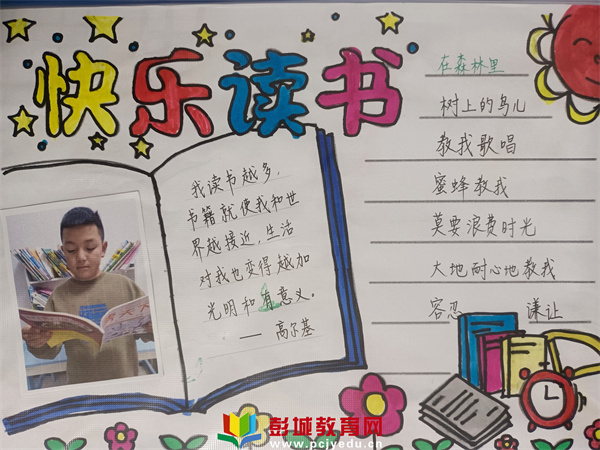 快乐读书
我读书越多，
书籍就使我和世
界越接近，生活
对我也变得越加
光明和有意义。
—— 高尔基
在森林里
树上的鸟儿
教我歌唱
蜜蜂教我
莫要浪费时光
大地耐心地教我
容忍 谦让
彭城教育网
www.pcjyedu.cn